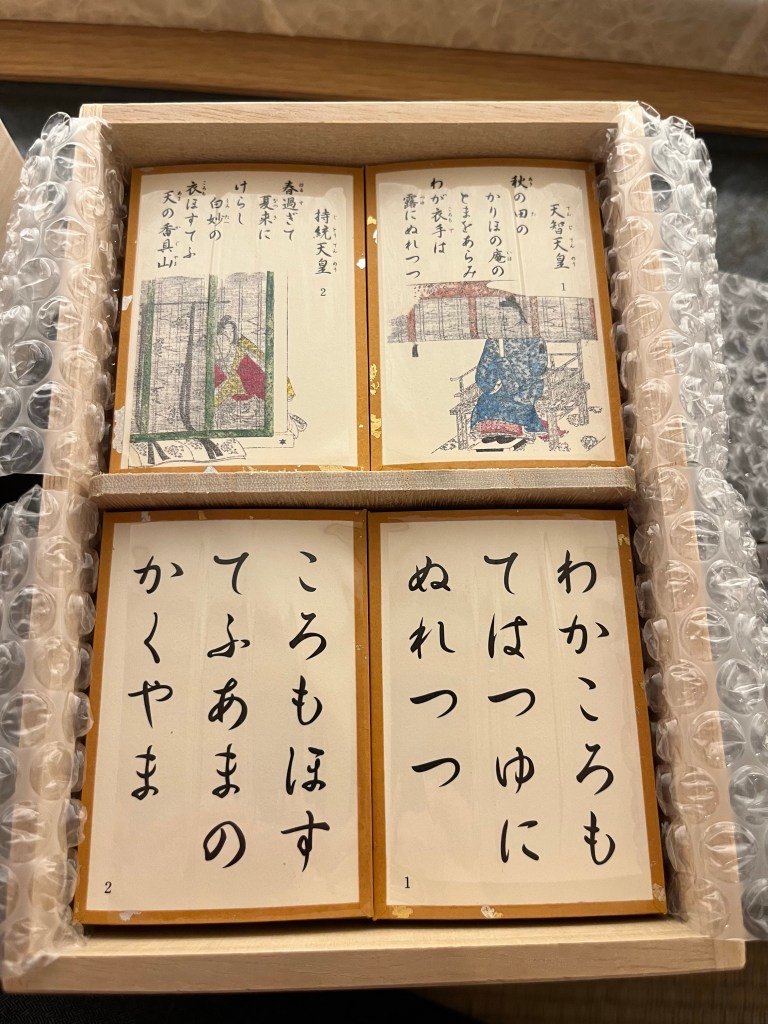 天智天皇
1
秋の田の
かりほの庵の
とまをあらみ
わが衣手は
露にぬれつつ
持統天皇
2
春過ぎて
夏来に
けらし
白妙の
衣ほすてふ
天の香具山
わかころも
てはつゆに
ぬれつつ
1
ころもほす
てふあまの
かくやま
2